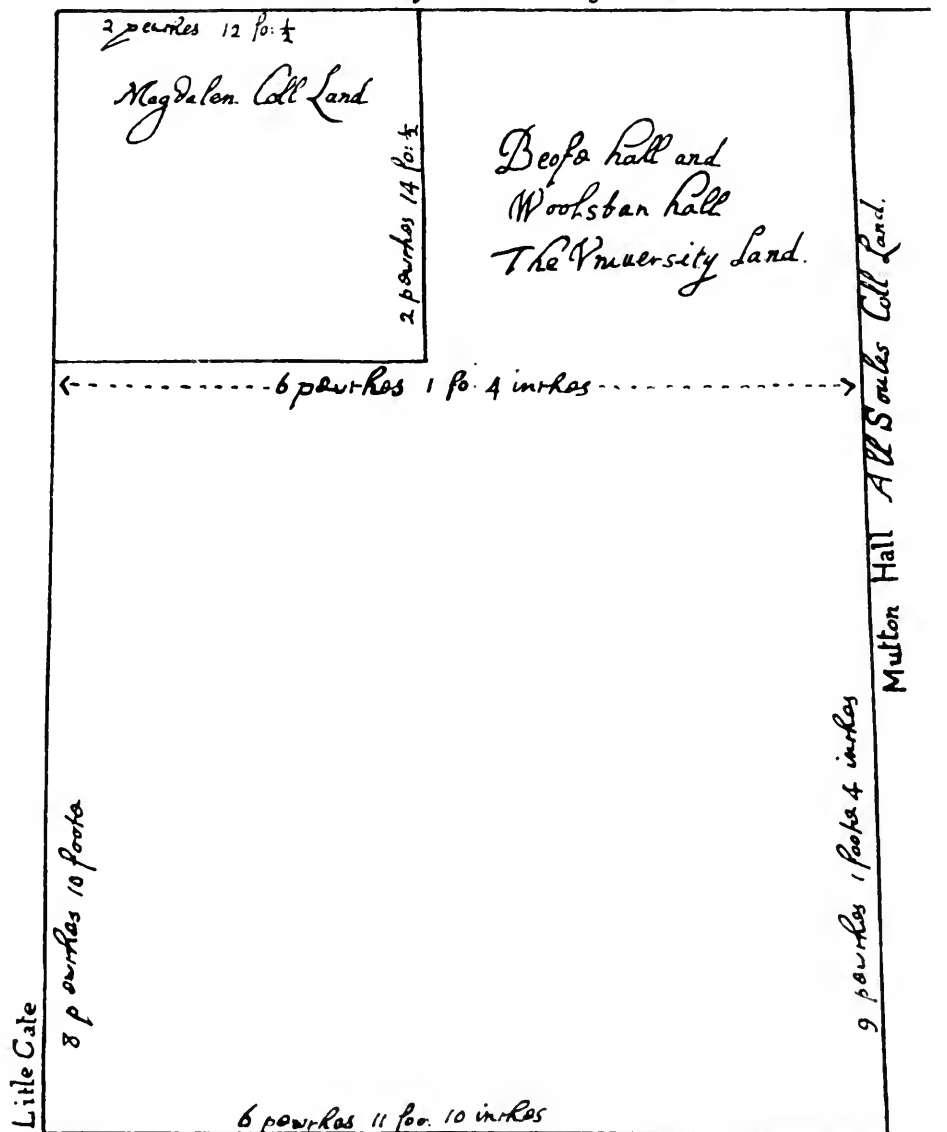 2 pearches 12 fo: ½
Magdalen Coll Land
2 pearches 14 fo: ½
Beofe hall and
Woolstan hall
The Vniuersity Land.
6 pearches 1 fo. 4 inches
Mutton Hall All Soules Coll Land.
8 pearches 10 foote
9 pearches 1 foote 4 inches
Little Gate
6 pearches 11 foo. 10 inches